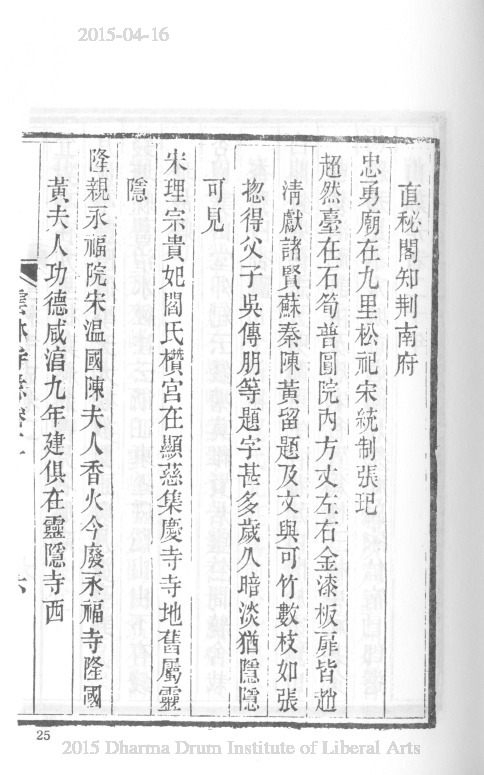 2015-04-16
直秘閣知荆南府
忠勇廟在九里松祀宋統制張玘
超然臺在石筍普圓院内方丈左右金漆板扉皆趙
清獻諸賢蘇秦陳黄留題及文與可竹數枝如張
揔得父子吳傳朋等題字甚多歲久暗淡猶隱隱
可見
宋理宗貴妃閻氏欑宮在顯慈集慶寺寺地舊屬靈
隱
隆親永福院宋温國陳夫人香火今廢永福寺隆國
黄夫人功德咸湻九年建俱在靈隱寺西
25
2015 Dharma Drum Institute of Liberal Arts